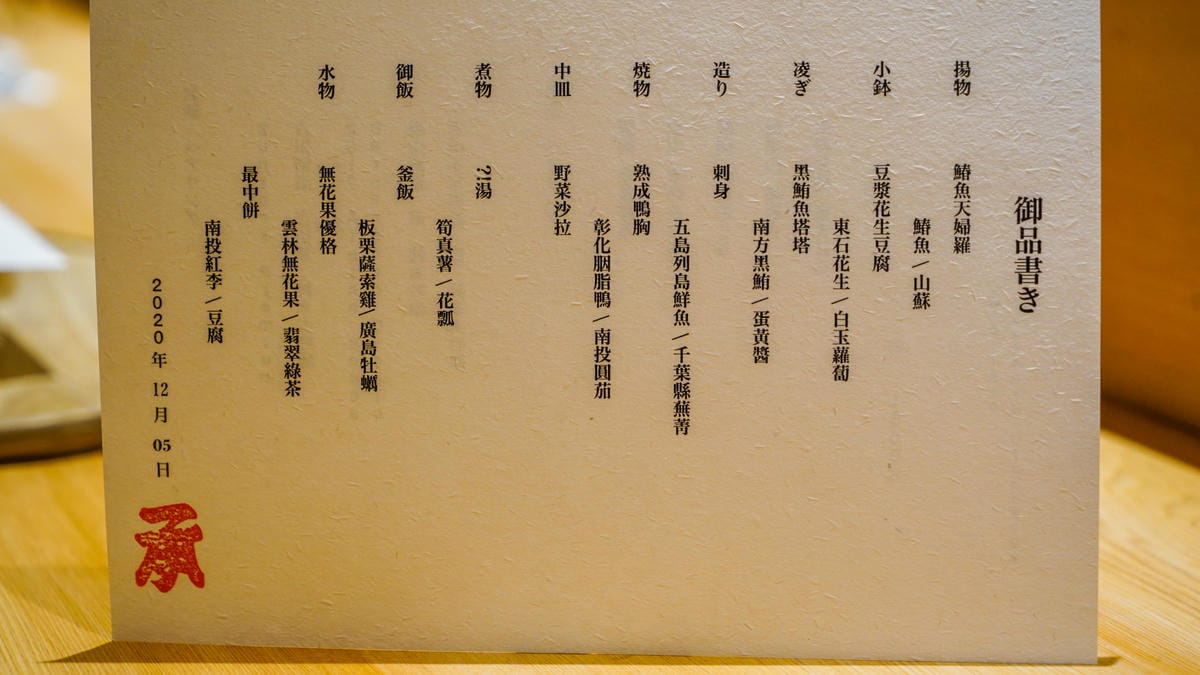 御品書き
揚物 鰆魚天婦羅
鰆魚 / 山蘇
小鉢 豆漿花生豆腐
東石花生 / 白玉蘿蔔
凌ぎ 黑鮪魚塔塔
南方黑鮪 / 蛋黃醬
造り 刺身
五島列島鮮魚 / 千葉縣蕪菁
焼物 熟成鴨胸
彰化胭脂鴨 / 南投圓茄
中皿 野菜沙拉
煮物 ?!湯
筍真薯 / 花瓢
御飯 釜飯
板栗薩索雞/ 廣島牡蠣
水物 無花果優格
雲林無花果 / 翡翠綠茶
最中餅
南投紅李 / 豆腐
2020年 12月 05日
承